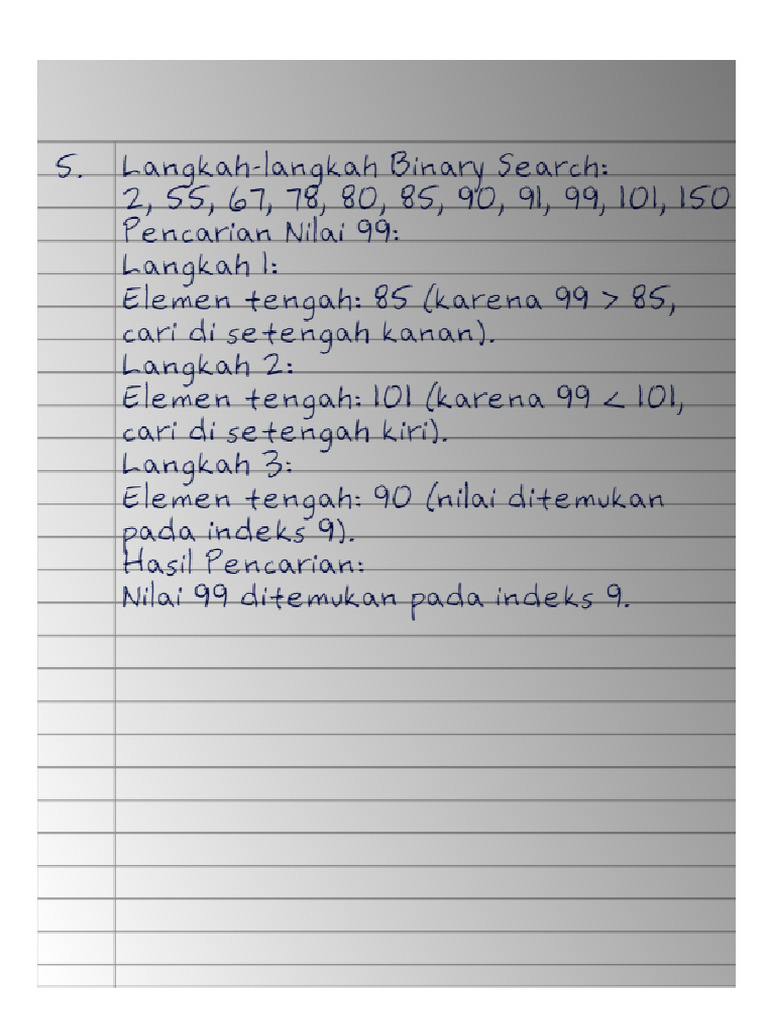 5. Langkah-langkah Binary Search:
2, 55, 67, 78, 80, 85, 90, 91, 99, 101, 150
Pencarian Nilai 99:
Langkah 1:
Elemen tengah: 85 (karena 99 > 85,
cari di setengah kanan).
Langkah 2:
Elemen tengah: 101 (karena 99 < 101,
cari di setengah kiri).
Langkah 3:
Elemen tengah: 90 (nilai ditemukan
pada indeks 9).
Hasil Pencarian:
Nilai 99 ditemukan pada indeks 9.